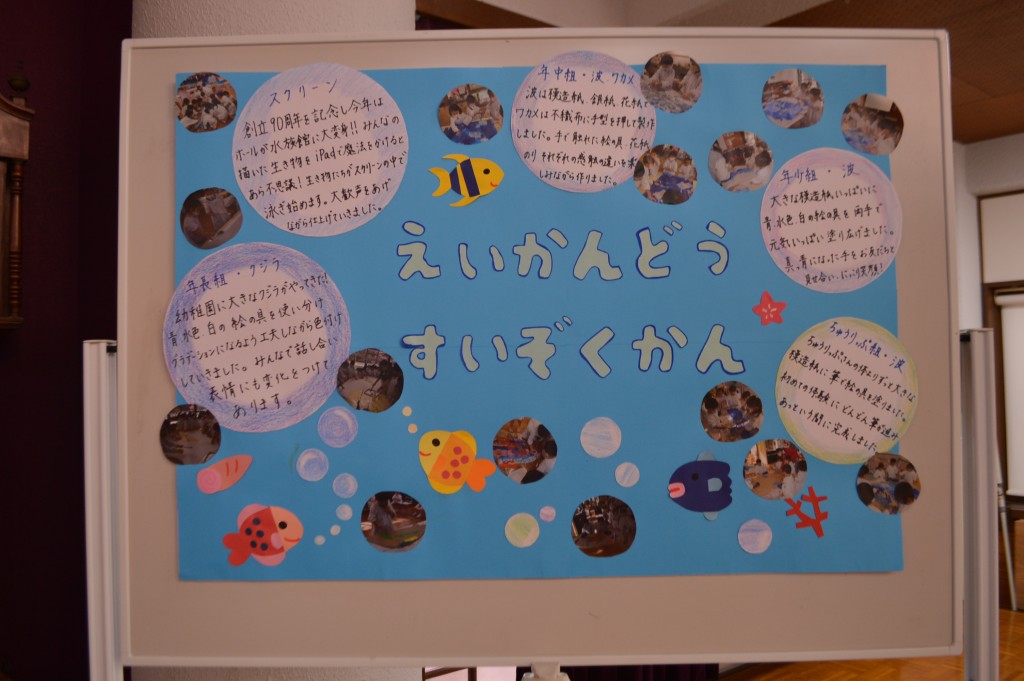 スクリーン
創立90周年を記念し今年は
ホールが水族館に大変身!! みんなの
描いた生き物を iPadで魔法をかけると
あら不思議! 生き物たちがスクリーンの中で
泳ぎ始めます。大歓声をあげ
ながら仕上げていきました。
年中組・波、ワカメ
波は模造紙、銀紙、花紙で
ワカメは不織布に手型を押して製作
しました。手で触れた絵の具、花紙、
のり それぞれの感触の違いを楽
しみながら作りました。
年少組・波
大きな模造紙いっぱいに
青、水色、白の絵の具を両手で
元気いっぱい塗り広げました。
真っ青になった手をお友だちと
見せ合い、にっこり笑顔!
えいかんどう
すいぞくかん
年長組・クジラ
幼稚園に大きなクジラがやってきた!!
青、水色、白の絵の具を使い分け
グラデーションになるよう工夫しながら色付け
していきました。みんなで話し合い
表情にも変化をつけて
あります。
ちゅうりっぷ組・波
ちゅうりっぷさんの体よりずっと大きな
模造紙に筆で絵の具を塗りました。
初めての体験にどんどん筆が進み
あっという間に完成しました